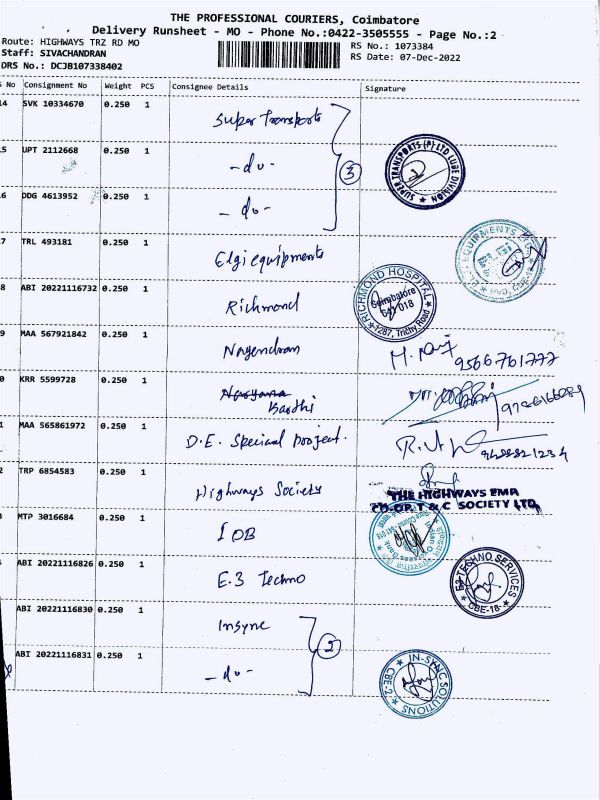 THE PROFESSIONAL COURIERS, Coimbatore
Delivery Runsheet - MO - Phone No.:0422-3505555 - Page No.:2
Route: HIGHWAYS TRZ RD MO
RS No.: 1073384
Staff: SIVACHANDRAN
RS Date: 07-Dec-2022
DRS No.: DCJB107338402
No Consignment No Weight PCS Consignee Details Signature
14 SVK 10334670 0.250 1 Super Transports
5 UPT 2112668 0.250 1 -do-
3
SUPER TRANSPORTS (P) LTD LUBE DIVISION
6 DDG 4613952 0.250 1 -do-
7 TRL 493181 0.250 1 Elgi equipments
EQUIPMENTS LTD
8 ABI 20221116732 0.250 1 Richmond
RICHMOND HOSPITAL
Coimbatore
641 018
1287, Trichy Road
9 MAA 567921842 0.250 1 Nagendran
9566761777
0 KRR 5599728 0.250 1 Narayana
Barthi
1 MAA 565861972 0.250 1 D.E. Special project.
2 TRP 6854583 0.250 1 Highways Society
THE HIGHWAYS EMP
CO-OP T & C SOCIETY LTD
MTP 3016684 0.250 1 IOB
ABI 20221116826 0.250 1 E.3 Techno
E3 TECHNO SERVICES
CBE-18
ABI 20221116830 0.250 1 Insync
2
ABI 20221116831 0.250 1 -do-
IN-SYNC SOLUTIONS
CBE-2